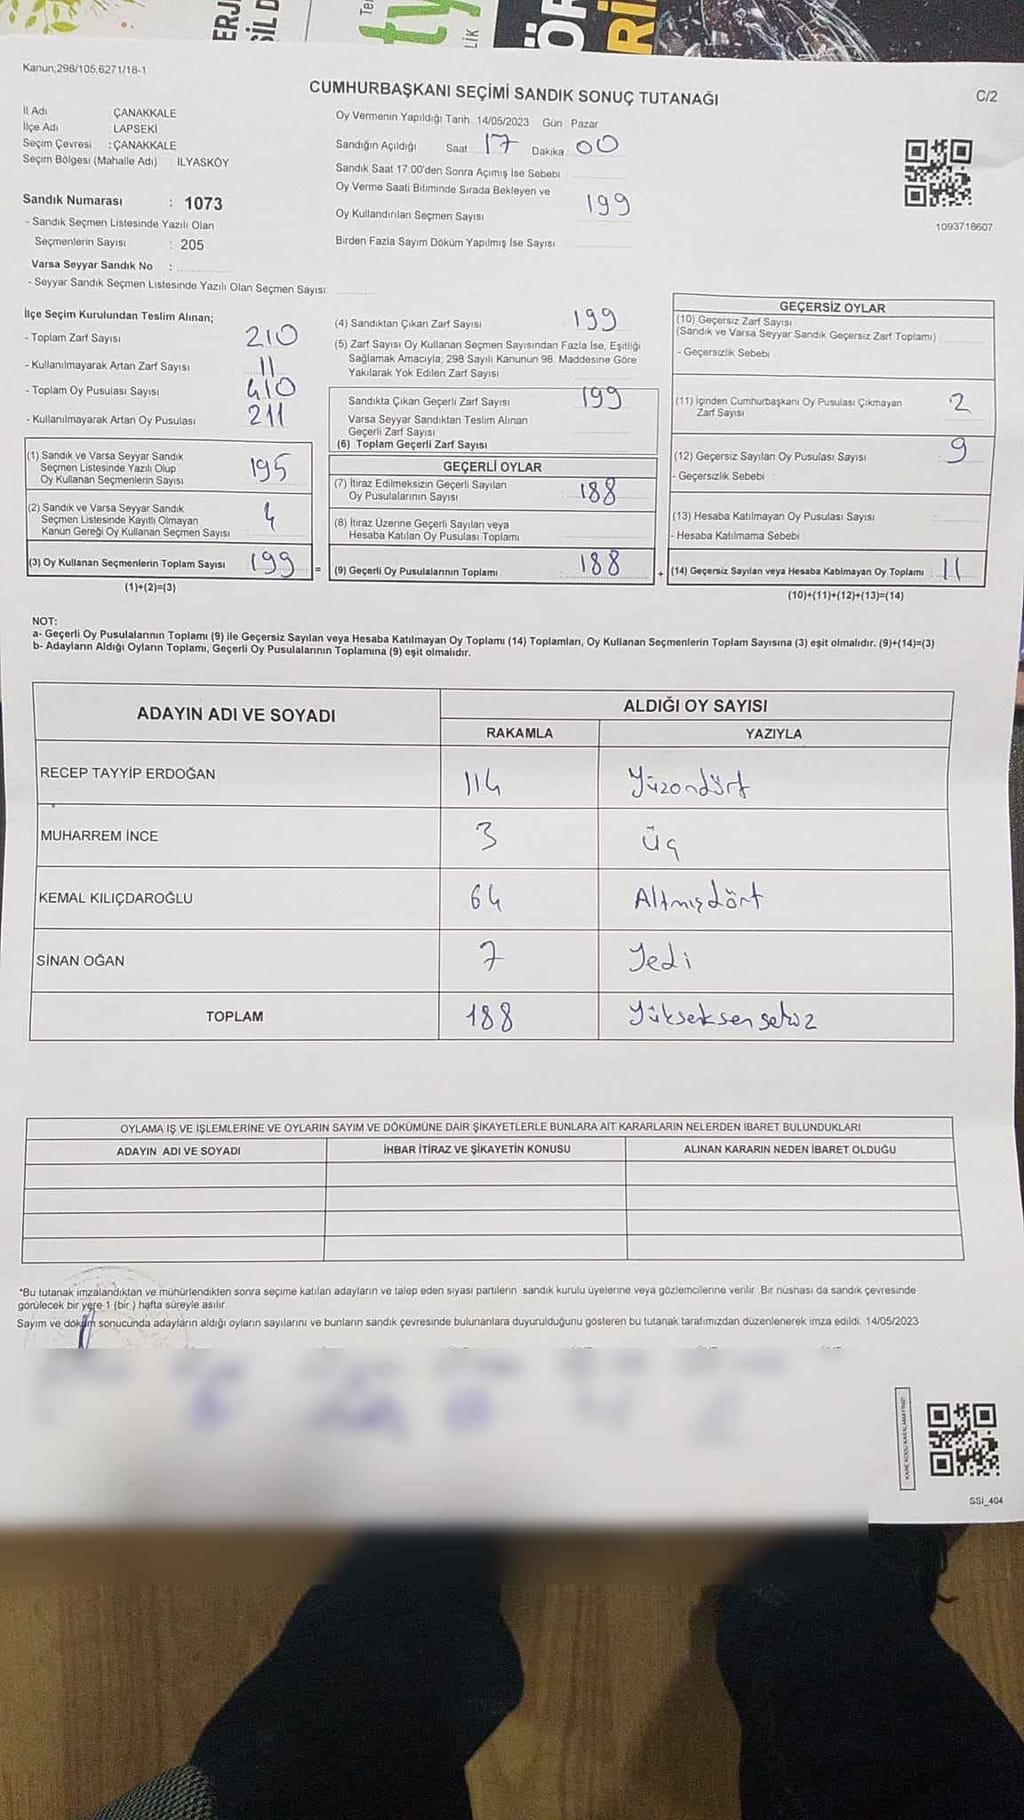 ERJ
SİL D
ty
LİK
ÖR
Rİ
Kanun;298/105,6271/18-1
CUMHURBAŞKANI SEÇİMİ SANDIK SONUÇ TUTANAĞI
C/2
İl Adı : ÇANAKKALE
İlçe Adı : LAPSEKİ
Seçim Çevresi : ÇANAKKALE
Seçim Bölgesi (Mahalle Adı) : İLYASKÖY
Sandık Numarası : 1073
- Sandık Seçmen Listesinde Yazılı Olan
Seçmenlerin Sayısı : 205
Varsa Seyyar Sandık No :
- Seyyar Sandık Seçmen Listesinde Yazılı Olan Seçmen Sayısı:
Oy Vermenin Yapıldığı Tarih 14/05/2023 Gün : Pazar
Sandığın Açıldığı Saat 17 Dakika 00
Sandık Saat 17:00'den Sonra Açımış İse Sebebi
Oy Verme Saati Bitiminde Sırada Bekleyen ve
Oy Kullandırılan Seçmen Sayısı 199
Birden Fazla Sayım Döküm Yapılmış İse Sayısı
1093718607
İlçe Seçim Kurulundan Teslim Alınan;
- Toplam Zarf Sayısı 210
- Kullanılmayarak Artan Zarf Sayısı 11
- Toplam Oy Pusulası Sayısı 410
- Kullanılmayarak Artan Oy Pusulası 211
(1) Sandık ve Varsa Seyyar Sandık
Seçmen Listesinde Yazılı Olup
Oy Kullanan Seçmenlerin Sayısı 195
(2) Sandık ve Varsa Seyyar Sandık
Seçmen Listesinde Kayıtlı Olmayan
Kanun Gereği Oy Kullanan Seçmen Sayısı 4
(3) Oy Kullanan Seçmenlerin Toplam Sayısı 199 =
(1)+(2)=(3)
(4) Sandıktan Çıkan Zarf Sayısı 199
(5) Zarf Sayısı Oy Kullanan Seçmen Sayısından Fazla İse, Eşitliği
Sağlamak Amacıyla, 298 Sayılı Kanunun 98. Maddesine Göre
Yakılarak Yok Edilen Zarf Sayısı
Sandıkta Çıkan Geçerli Zarf Sayısı 199
Varsa Seyyar Sandıktan Teslim Alınan
Geçerli Zarf Sayısı
(6) Toplam Geçerli Zarf Sayısı
GEÇERLİ OYLAR
(7) İtiraz Edilmeksizin Geçerli Sayılan
Oy Pusulalarının Sayısı 188
(8) İtiraz Üzerine Geçerli Sayılan veya
Hesaba Katılan Oy Pusulası Toplamı
(9) Geçerli Oy Pusulalarının Toplamı 188 +
GEÇERSİZ OYLAR
(10) Geçersiz Zarf Sayısı
(Sandık ve Varsa Seyyar Sandık Geçersiz Zarf Toplamı)
- Geçersizlik Sebebi
(11) İçinden Cumhurbaşkanı Oy Pusulası Çıkmayan
Zarf Sayısı 2
(12) Geçersiz Sayılan Oy Pusulası Sayısı 9
- Geçersizlik Sebebi :
(13) Hesaba Katılmayan Oy Pusulası Sayısı
- Hesaba Katılmama Sebebi
(14) Geçersiz Sayılan veya Hesaba Katılmayan Oy Toplamı 11
(10)+(11)+(12)+(13)=(14)
NOT:
a- Geçerli Oy Pusulalarının Toplamı (9) ile Geçersiz Sayılan veya Hesaba Katılmayan Oy Toplamı (14) Toplamları, Oy Kullanan Seçmenlerin Toplam Sayısına (3) eşit olmalıdır. (9)+(14)=(3)
b- Adayların Aldığı Oyların Toplamı, Geçerli Oy Pusulalarının Toplamına (9) eşit olmalıdır.
ADAYIN ADI VE SOYADI ALDIĞI OY SAYISI
RAKAMLA YAZIYLA
RECEP TAYYİP ERDOĞAN 114 Yüzondört
MUHARREM İNCE 3 Üç
KEMAL KILIÇDAROĞLU 64 Altmışdört
SİNAN OĞAN 7 Yedi
TOPLAM 188 Yükseksensekiz
OYLAMA İŞ VE İŞLEMLERİNE VE OYLARIN SAYIM VE DÖKÜMÜNE DAİR ŞİKAYETLERLE BUNLARA AİT KARARLARIN NELERDEN İBARET BULUNDUKLARI
ADAYIN ADI VE SOYADI İHBAR İTİRAZ VE ŞİKAYETİN KONUSU ALINAN KARARIN NEDEN İBARET OLDUĞU
*Bu tutanak imzalandıktan ve mühürlendikten sonra seçime katılan adayların ve talep eden siyasi partilerin sandık kurulu üyelerine veya gözlemcilerine verilir. Bir nüshası da sandık çevresinde
görülecek bir yere 1 (bir ) hafta süreyle asılır.
Sayım ve döküm sonucunda adayların aldığı oyların sayılarını ve bunların sandık çevresinde bulunanlara duyurulduğunu gösteren bu tutanak tarafımızdan düzenlenerek imza edildi. 14/05/2023
SSİ_404